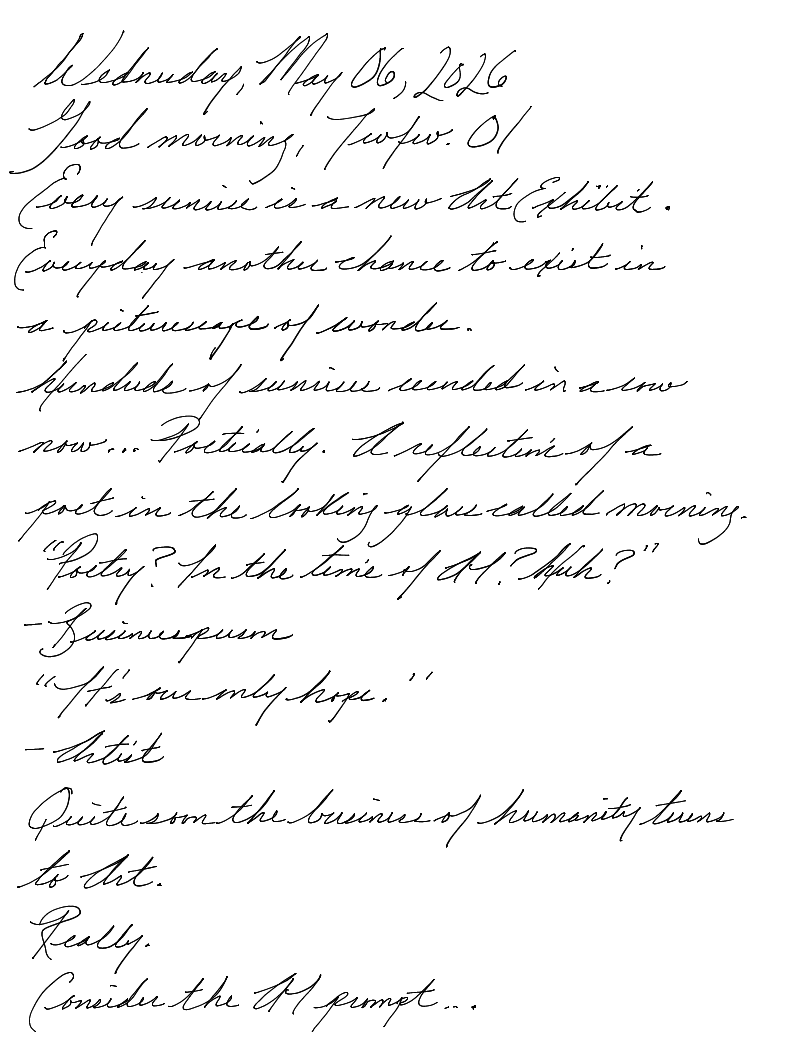 Wednesday, May 06, 2026
Good morning, Twfw. 01
Every sunrise is a new Art Exhibit.
Everyday another chance to exist in
a picturescape of wonder.
Hundreds of sunrises recorded in a row
now... Poetically. A reflection of a
poet in the looking glass called morning.
"Poetry? In the time of AI? Huh?"
- Businessperson
"It's our only hope."
- Artist
Quite soon the business of humanity turns
to Art.
Really.
Consider the AI prompt...